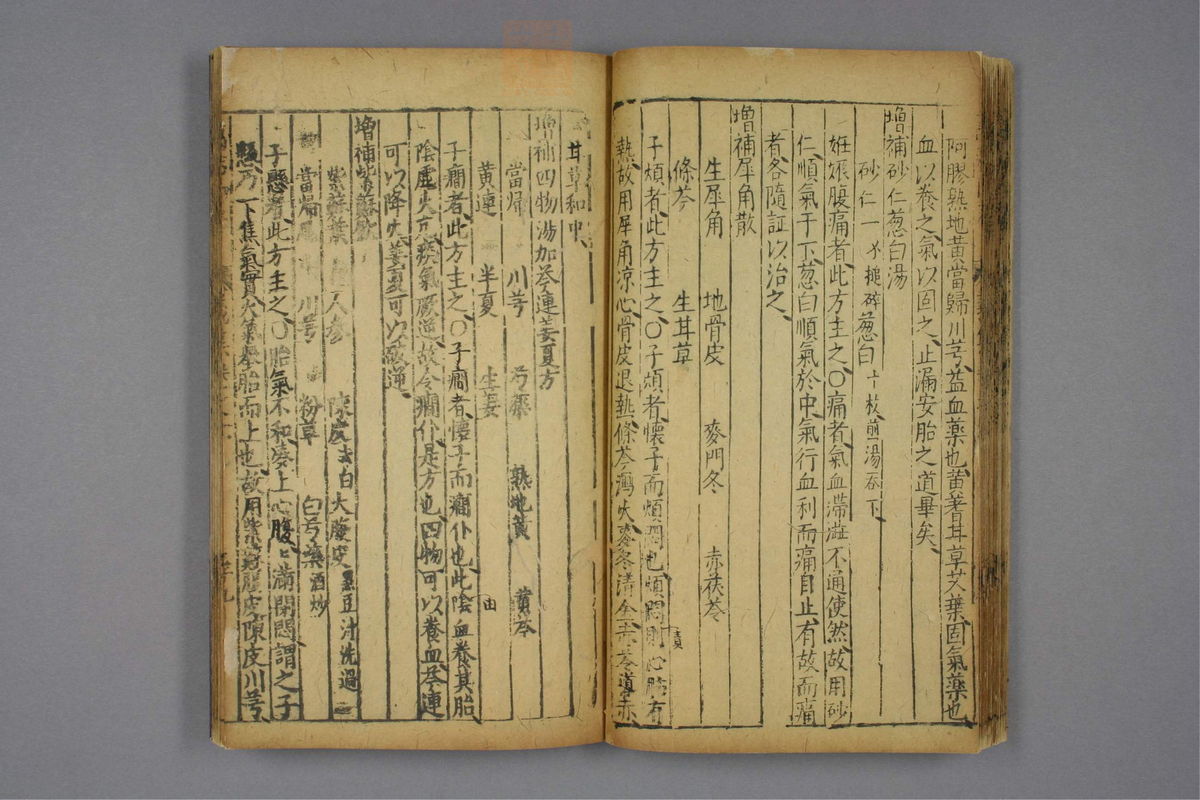 阿膠熟地黃當歸川芎益血藥也黃蓍甘草艾葉固氣藥也
血以養之氣以固之止漏安胎之道畢矣
增補砂仁葱白湯
砂仁一 搥碎葱白十枝煎湯吞下
姙娠腹痛者此方主之〇痛者氣血滯澁不通使然故用砂
仁順氣于下葱白順氣於中氣行血利而痛自止有故而痛
者各隨証以治之
增補犀角散
生犀角 地骨皮 麥門冬 赤茯苓
條芩 生甘草
子煩者此方主之〇子煩者懷子而煩悶也煩悶則心肺有
熱故用犀角凉心骨皮退熱條芩瀉火麥冬清金赤苓導赤
甘草和中
增補四物湯加芩連姜夏方
當歸 川芎 芍藥 熟地黃 黃芩
黃連 半夏 生姜
子癎者此方主之〇子癎者懷子而癎仆也此陰血養其胎
陰虛火亢痰氣厥逆故令癎仆是方也四物可以養血芩連
可以降火姜夏可以破逆
增補紫蘇飲
紫蘇葉 人參 陳皮去白 大腹皮黑豆汁洗過
當歸 川芎 粉草 白芍藥酒炒
子懸者此方主之〇胎氣不和湊上心腹〻滿閉悶謂之子
懸乃下焦氣實 胎而上也故用紫蘇腹皮陳皮川芎